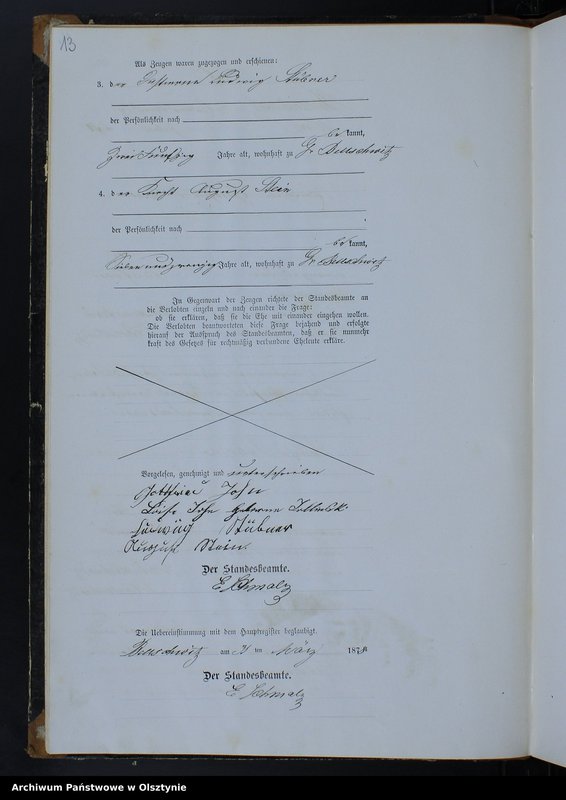 13
Als Zeugen waren zugezogen und erschienen:
3. der Ludwig Stübner
der Persönlichkeit nach
be kannt,
Jahre alt, wohnhaft zu Gr Bellschwitz
4. der Knecht August Stein
der Persönlichkeit nach
be kannt,
Siebenundzwanzig Jahre alt, wohnhaft zu Gr Bellschwitz
In Gegenwart der Zeugen richtete der Standesbeamte an
die Verlobten einzeln und nach einander die Frage:
ob sie erklären, daß sie die Ehe mit einander eingehen wollen.
Die Verlobten beantworteten diese Frage bejahend und erfolgte
hierauf der Ausspruch des Standesbeamten, daß er sie nunmehr
kraft des Gesetzes für rechtmäßig verbundene Eheleute erkläre.
Vorgelesen, genehmigt und unterschrieben
Gottfried John
John geborene
Ludwig Stübner
August Stein
Der Standesbeamte.
E Schmalz
Die Uebereinstimmung mit dem Hauptregister beglaubigt.
Bellschwitz am im März 187
Der Standesbeamte.
E Schmalz
Archiwum Państwowe w Olsztynie